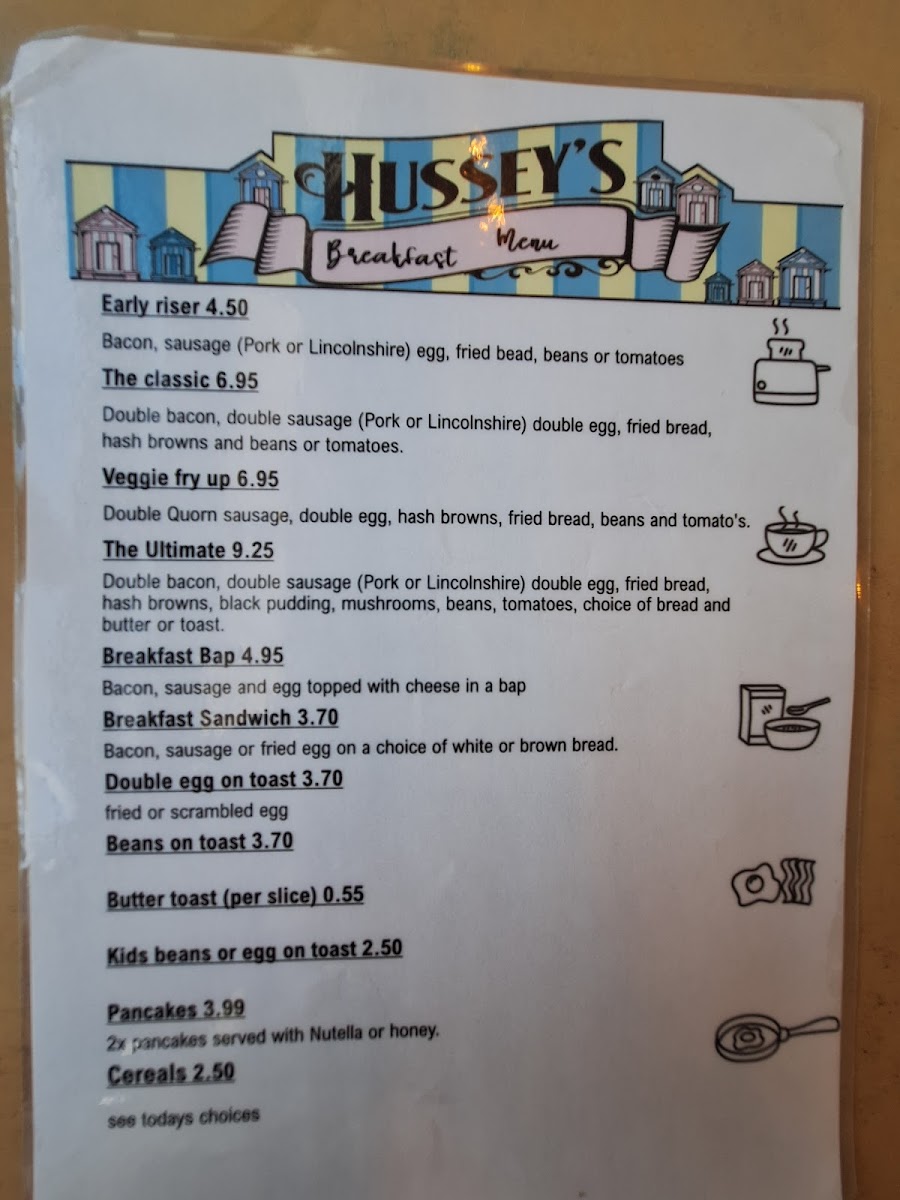 HUSSEY'S
Breakfast Menu
Early riser 4.50
Bacon, sausage (Pork or Lincolnshire) egg, fried bead, beans or tomatoes
The classic 6.95
Double bacon, double sausage (Pork or Lincolnshire) double egg, fried bread,
hash browns and beans or tomatoes.
Veggie fry up 6.95
Double Quorn sausage, double egg, hash browns, fried bread, beans and tomato's.
The Ultimate 9.25
Double bacon, double sausage (Pork or Lincolnshire) double egg, fried bread,
hash browns, black pudding, mushrooms, beans, tomatoes, choice of bread and
butter or toast.
Breakfast Bap 4.95
Bacon, sausage and egg topped with cheese in a bap
Breakfast Sandwich 3.70
Bacon, sausage or fried egg on a choice of white or brown bread.
Double egg on toast 3.70
fried or scrambled egg
Beans on toast 3.70
Butter toast (per slice) 0.55
Kids beans or egg on toast 2.50
Pancakes 3.99
2x pancakes served with Nutella or honey.
Cereals 2.50
see todays choices